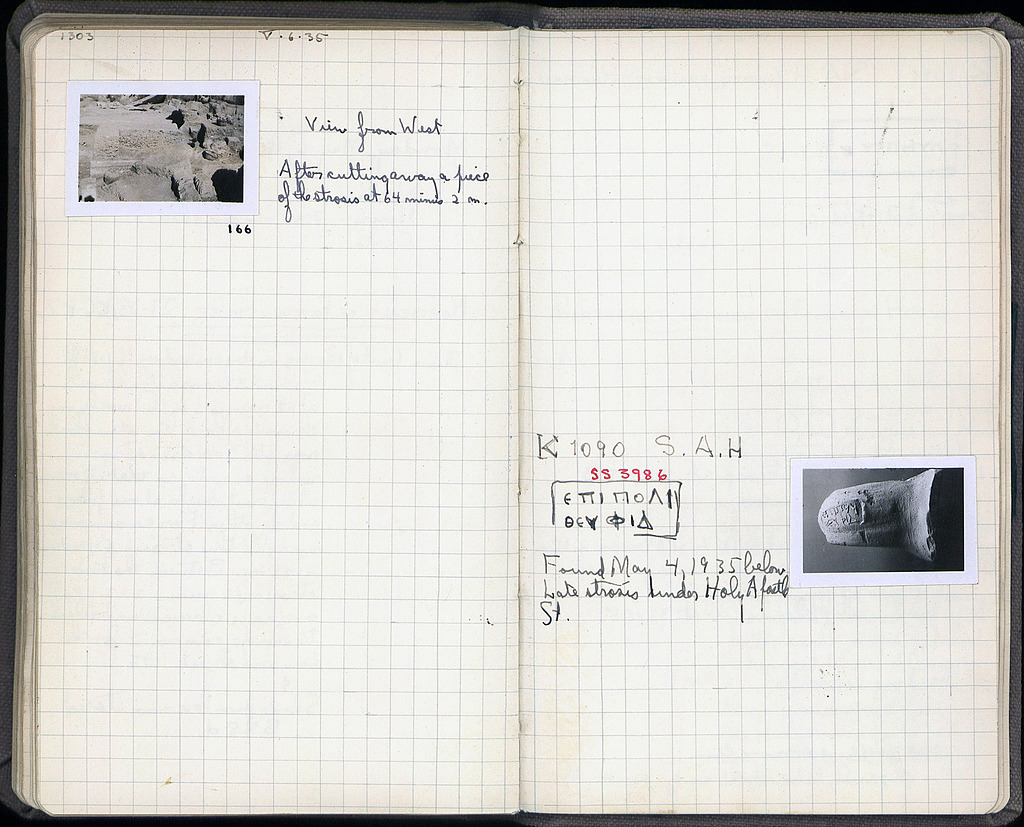 1303
V.6.35
View from West
After cutting away a piece
of the strosis at 64 minus 2 m.
166
K 1090 S.A.H
SS 3986
ΕΠΙ ΠΟΛΙ
ΘΕΥ ΦΙΔ
Found May 4, 1935 below
Late strosis under Holy Apostle
St.